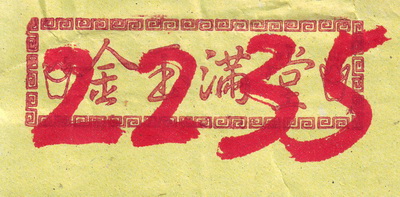 金玉滿堂
2235